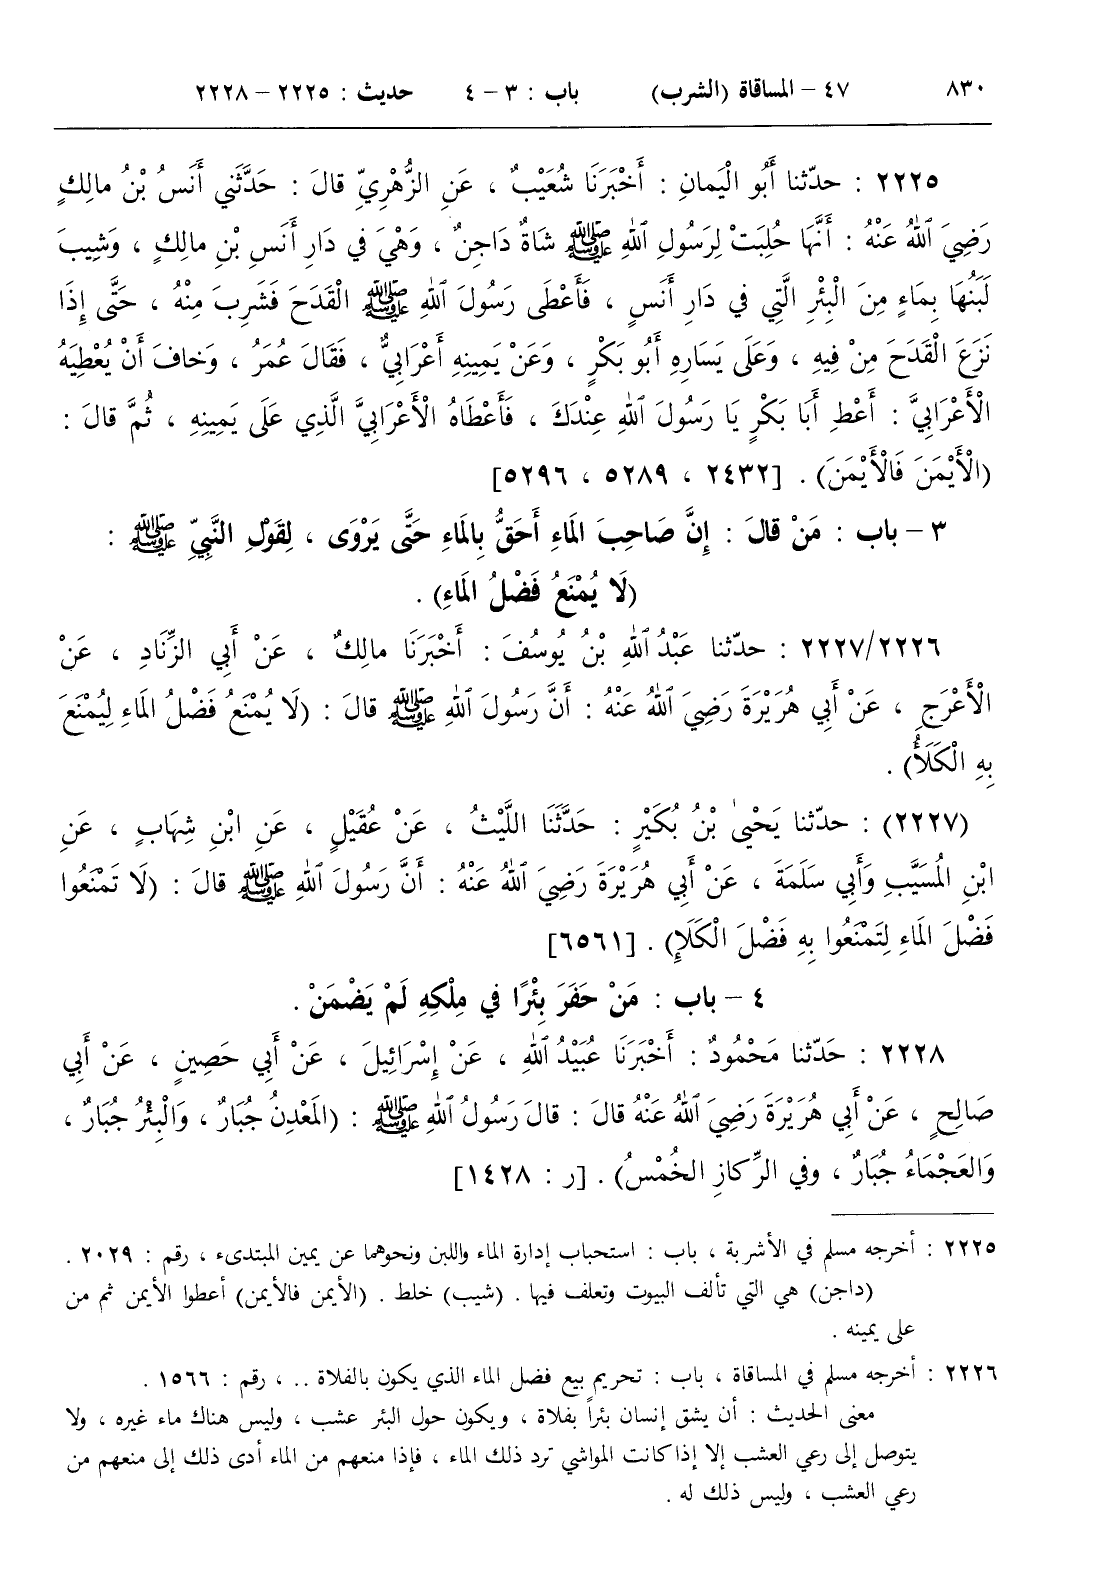 ٨٣٠ ٤٧ – المساقاة (الشرب) باب : ٣ – ٤ حديث : ٢٢٢٥ – ٢٢٢٨
٢٢٢٥ : حدّثنا أَبُو الْيَمانِ : أَخْبَرَنَا شُعَيْبٌ ، عَنِ الزُّهْرِيِّ قالَ : حَدَّثَنِي أَنَسُ بْنُ مالِكٍ
رَضِيَ ٱللهُ عَنْهُ : أَنَّهَا حُلِبَتْ لِرَسُولِ ٱللهِ ﷺ شَاةٌ دَاجِنٌ ، وَهْيَ في دَارِ أَنَسِ بْنِ مالِكٍ ، وَشِيبَ
لَبَنُهَا بِمَاءٍ مِنَ الْبِئْرِ الَّتِي في دَارِ أَنَسٍ ، فَأَعْطَى رَسُولَ ٱللهِ ﷺ الْقَدَحَ فَشَرِبَ مِنْهُ ، حَتَّى إِذَا
نَزَعَ الْقَدَحَ مِنْ فِيهِ ، وَعَلَى يَسَارِهِ أَبُو بَكْرٍ ، وَعَنْ يَمِينِهِ أَعْرَابِيٌّ ، فَقَالَ عُمَرُ ، وَخافَ أَنْ يُعْطِيَهُ
الْأَعْرَابِيَّ : أَعْطِ أَبَا بَكْرٍ يَا رَسُولَ ٱللهِ عِنْدَكَ ، فَأَعْطَاهُ الْأَعْرَابِيَّ الَّذِي عَلَى يَمِينِهِ ، ثُمَّ قالَ :
(الْأَيْمَنَ فَالْأَيْمَنَ) . [٢٤٣٢ ، ٥٢٨٩ ، ٥٢٩٦]
٣ – باب : مَنْ قالَ : إِنَّ صَاحِبَ المَاءِ أَحَقُّ بِالمَاءِ حَتَّى يَرْوَى ، لِقَوْلِ النَّبِيِّ ﷺ :
(لَا يُمْنَعُ فَضْلُ المَاءِ) .
٢٢٢٧/٢٢٢٦ : حدّثنا عَبْدُ ٱللهِ بْنُ يُوسُفَ : أَخْبَرَنَا مالِكٌ ، عَنْ أَبِي الزِّنَادِ ، عَنْ
الْأَعْرَجِ ، عَنْ أَبِي هُرَيْرَةَ رَضِيَ ٱللهُ عَنْهُ : أَنَّ رَسُولَ ٱللهِ ﷺ قالَ : (لَا يُمْنَعُ فَضْلُ المَاءِ لِيُمْنَعَ
بِهِ الْكَلَأُ) .
(٢٢٢٧) : حدّثنا يَحْيىٰ بْنُ بُكَيْرٍ : حَدَّثَنَا اللَّيْثُ ، عَنْ عُقَيْلٍ ، عَنِ ابْنِ شِهَابٍ ، عَنِ
ابْنِ المُسَيَّبِ وَأَبِي سَلَمَةَ ، عَنْ أَبِي هُرَيْرَةَ رَضِيَ ٱللهُ عَنْهُ : أَنَّ رَسُولَ ٱللهِ ﷺ قالَ : (لَا تَمْنَعُوا
فَضْلَ المَاءِ لِتَمْنَعُوا بِهِ فَضْلَ الْكَلَإِ) . [٦٥٦١]
٤ – باب : مَنْ حَفَرَ بِئْرًا في مِلْكِهِ لَمْ يَضْمَنْ .
٢٢٢٨ : حَدّثنا مَحْمُودٌ : أَخْبَرَنَا عُبَيْدُ ٱللهِ ، عَنْ إِسْرَائِيلَ ، عَنْ أَبِي حَصِينٍ ، عَنْ أَبِي
صَالِحٍ ، عَنْ أَبِي هُرَيْرَةَ رَضِيَ ٱللهُ عَنْهُ قالَ : قالَ رَسُولُ ٱللهِ ﷺ : (المَعْدِنُ جُبَارٌ ، وَالْبِئْرُ جُبَارٌ ،
وَالعَجْمَاءُ جُبَارٌ ، وفي الرِّكازِ الخُمْسُ) . [ر : ١٤٢٨]
٢٢٢٥ : أخرجه مسلم في الأشربة ، باب : استحباب إدارة الماء واللبن ونحوهما عن يمين المبتدىء ، رقم : ٢٠٢٩ .
(داجن) هي التي تألف البيوت وتعلف فيها . (شيب) خلط . (الأيمن فالأيمن) أعطوا الأيمن ثم من
على يمينه .
٢٢٢٦ : أخرجه مسلم في المساقاة ، باب : تحريم بيع فضل الماء الذي يكون بالفلاة .. ، رقم : ١٥٦٦ .
معنى الحديث : أن يشق إنسان بئراً بفلاة ، ويكون حول البئر عشب ، وليس هناك ماء غيره ، ولا
يتوصل إلى رعي العشب إلا إذا كانت المواشي ترد ذلك الماء ، فإذا منعهم من الماء أدى ذلك إلى منعهم من
رعي العشب ، وليس ذلك له .